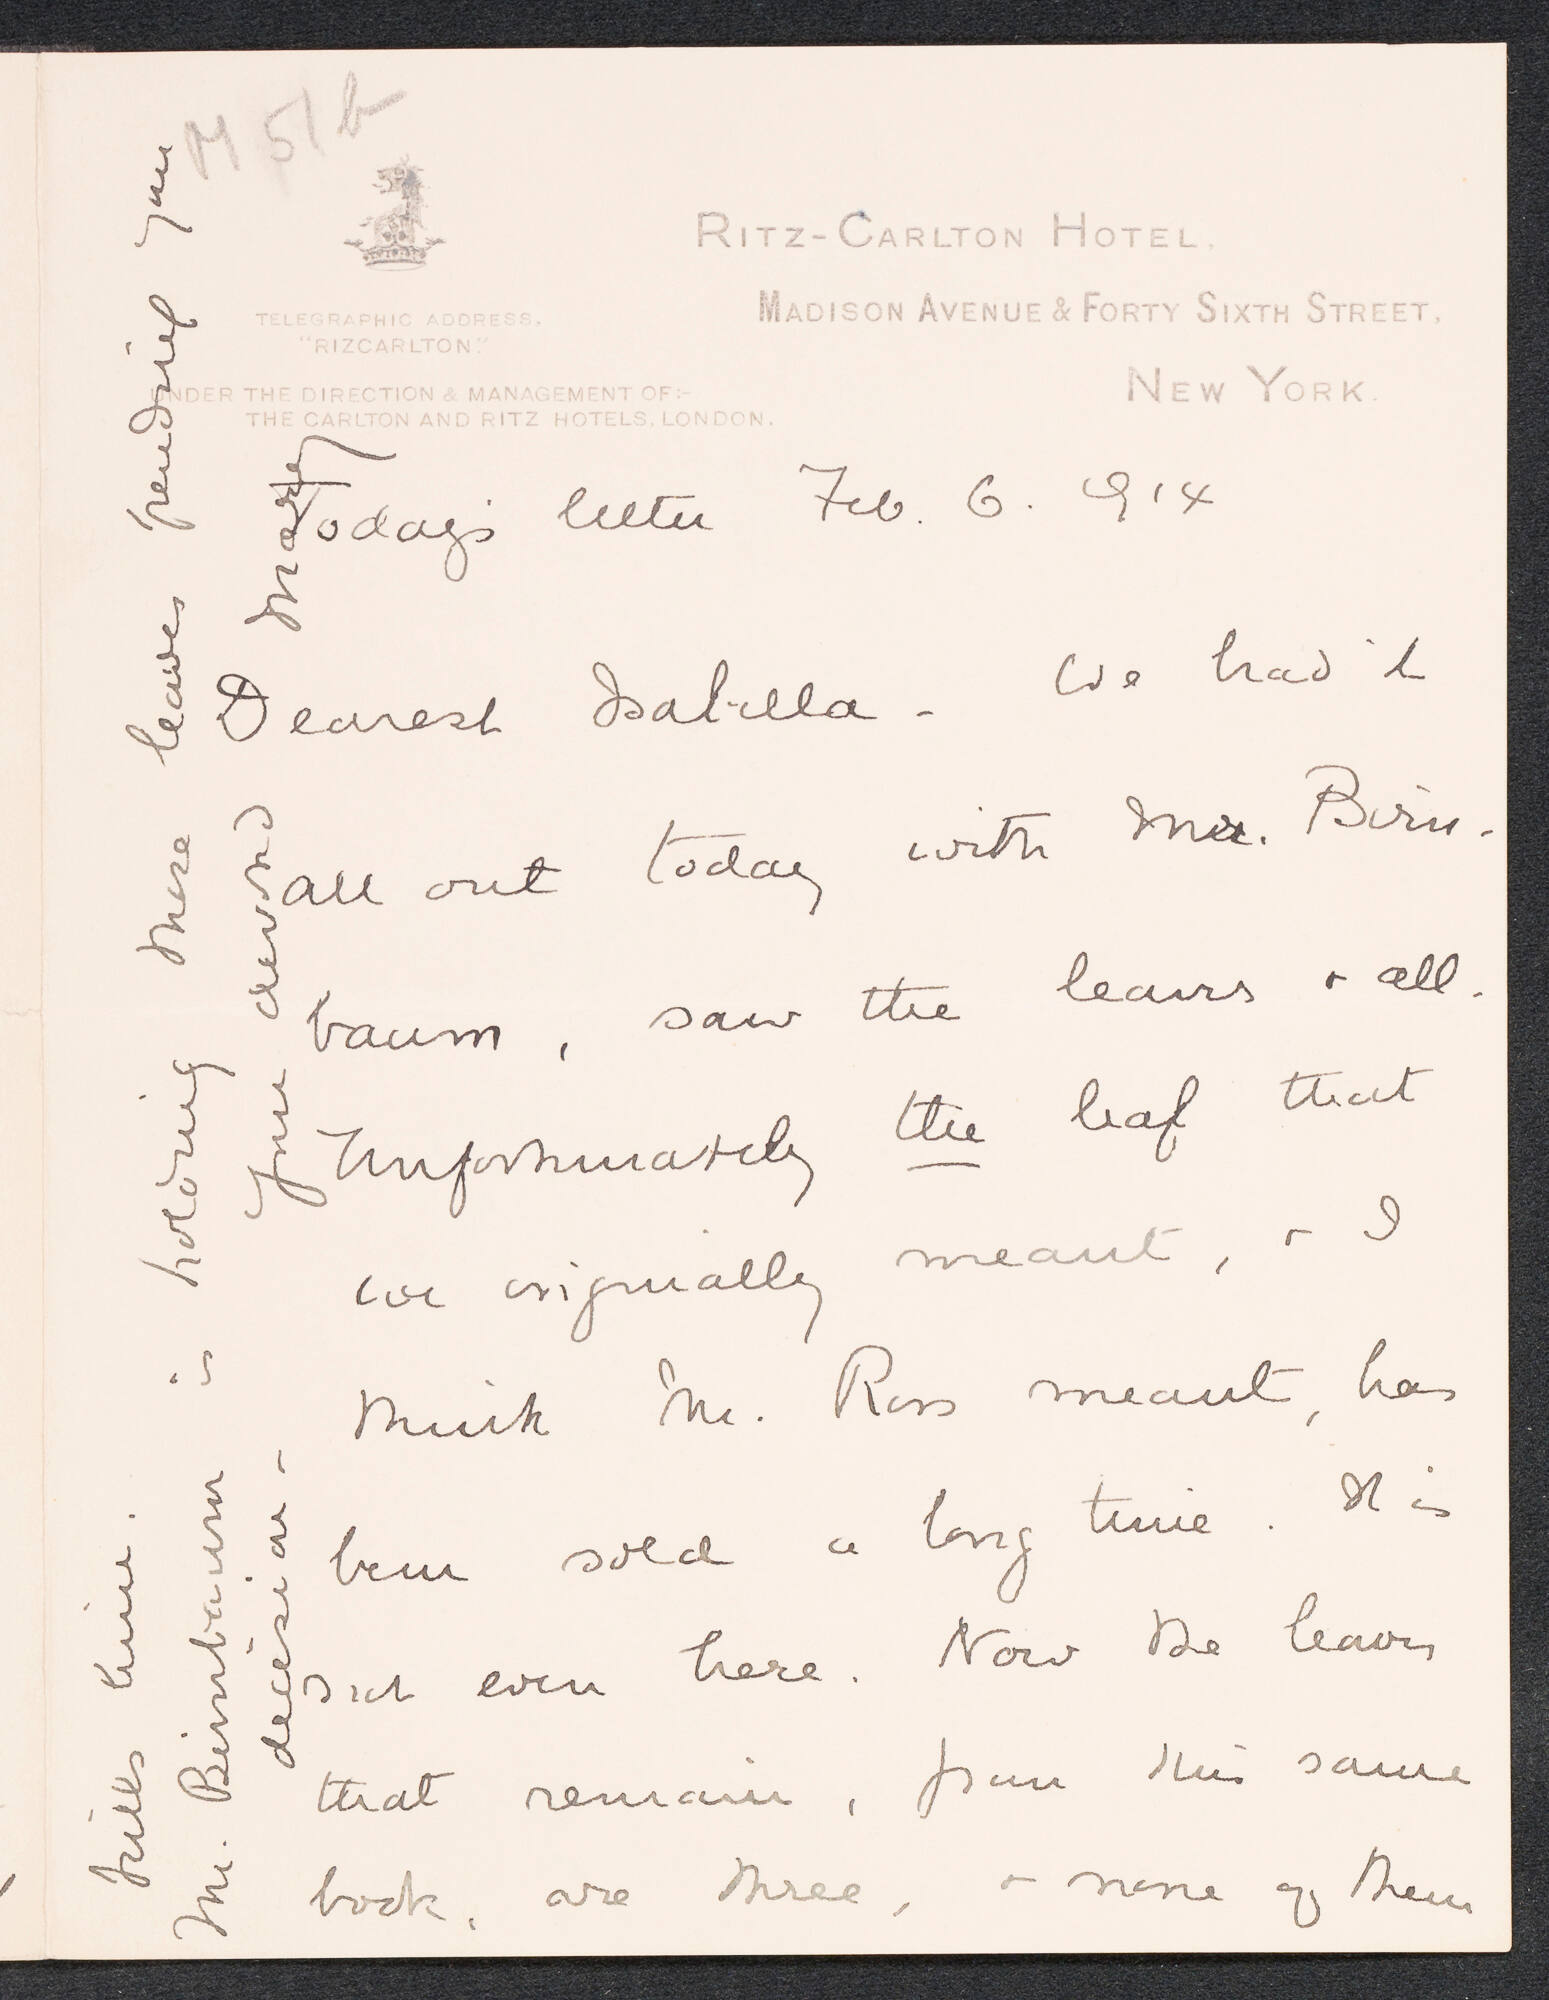 M 51b
TELEGRAPHIC ADDRESS,
"RIZCARLTON."
UNDER THE DIRECTION & MANAGEMENT OF:-
THE CARLTON AND RITZ HOTELS, LONDON.
RITZ-CARLTON HOTEL,
MADISON AVENUE & FORTY SIXTH STREET,
NEW YORK.
Today's letter Feb. 6. 1914
Dearest Isabella - We had it
all out today with Mr. Birn-
baum, saw the leaves & all.
Unfortunately the leaf that
we originally meant, & I
think Mr. Ross meant, has
been sold a long time. It is
not even here. Now the leaves
that remain, from this same
book, are three, & none of them
fills him.
Mr. Birnbaum is holding these leaves pending your
decision -
Your devoted Mary